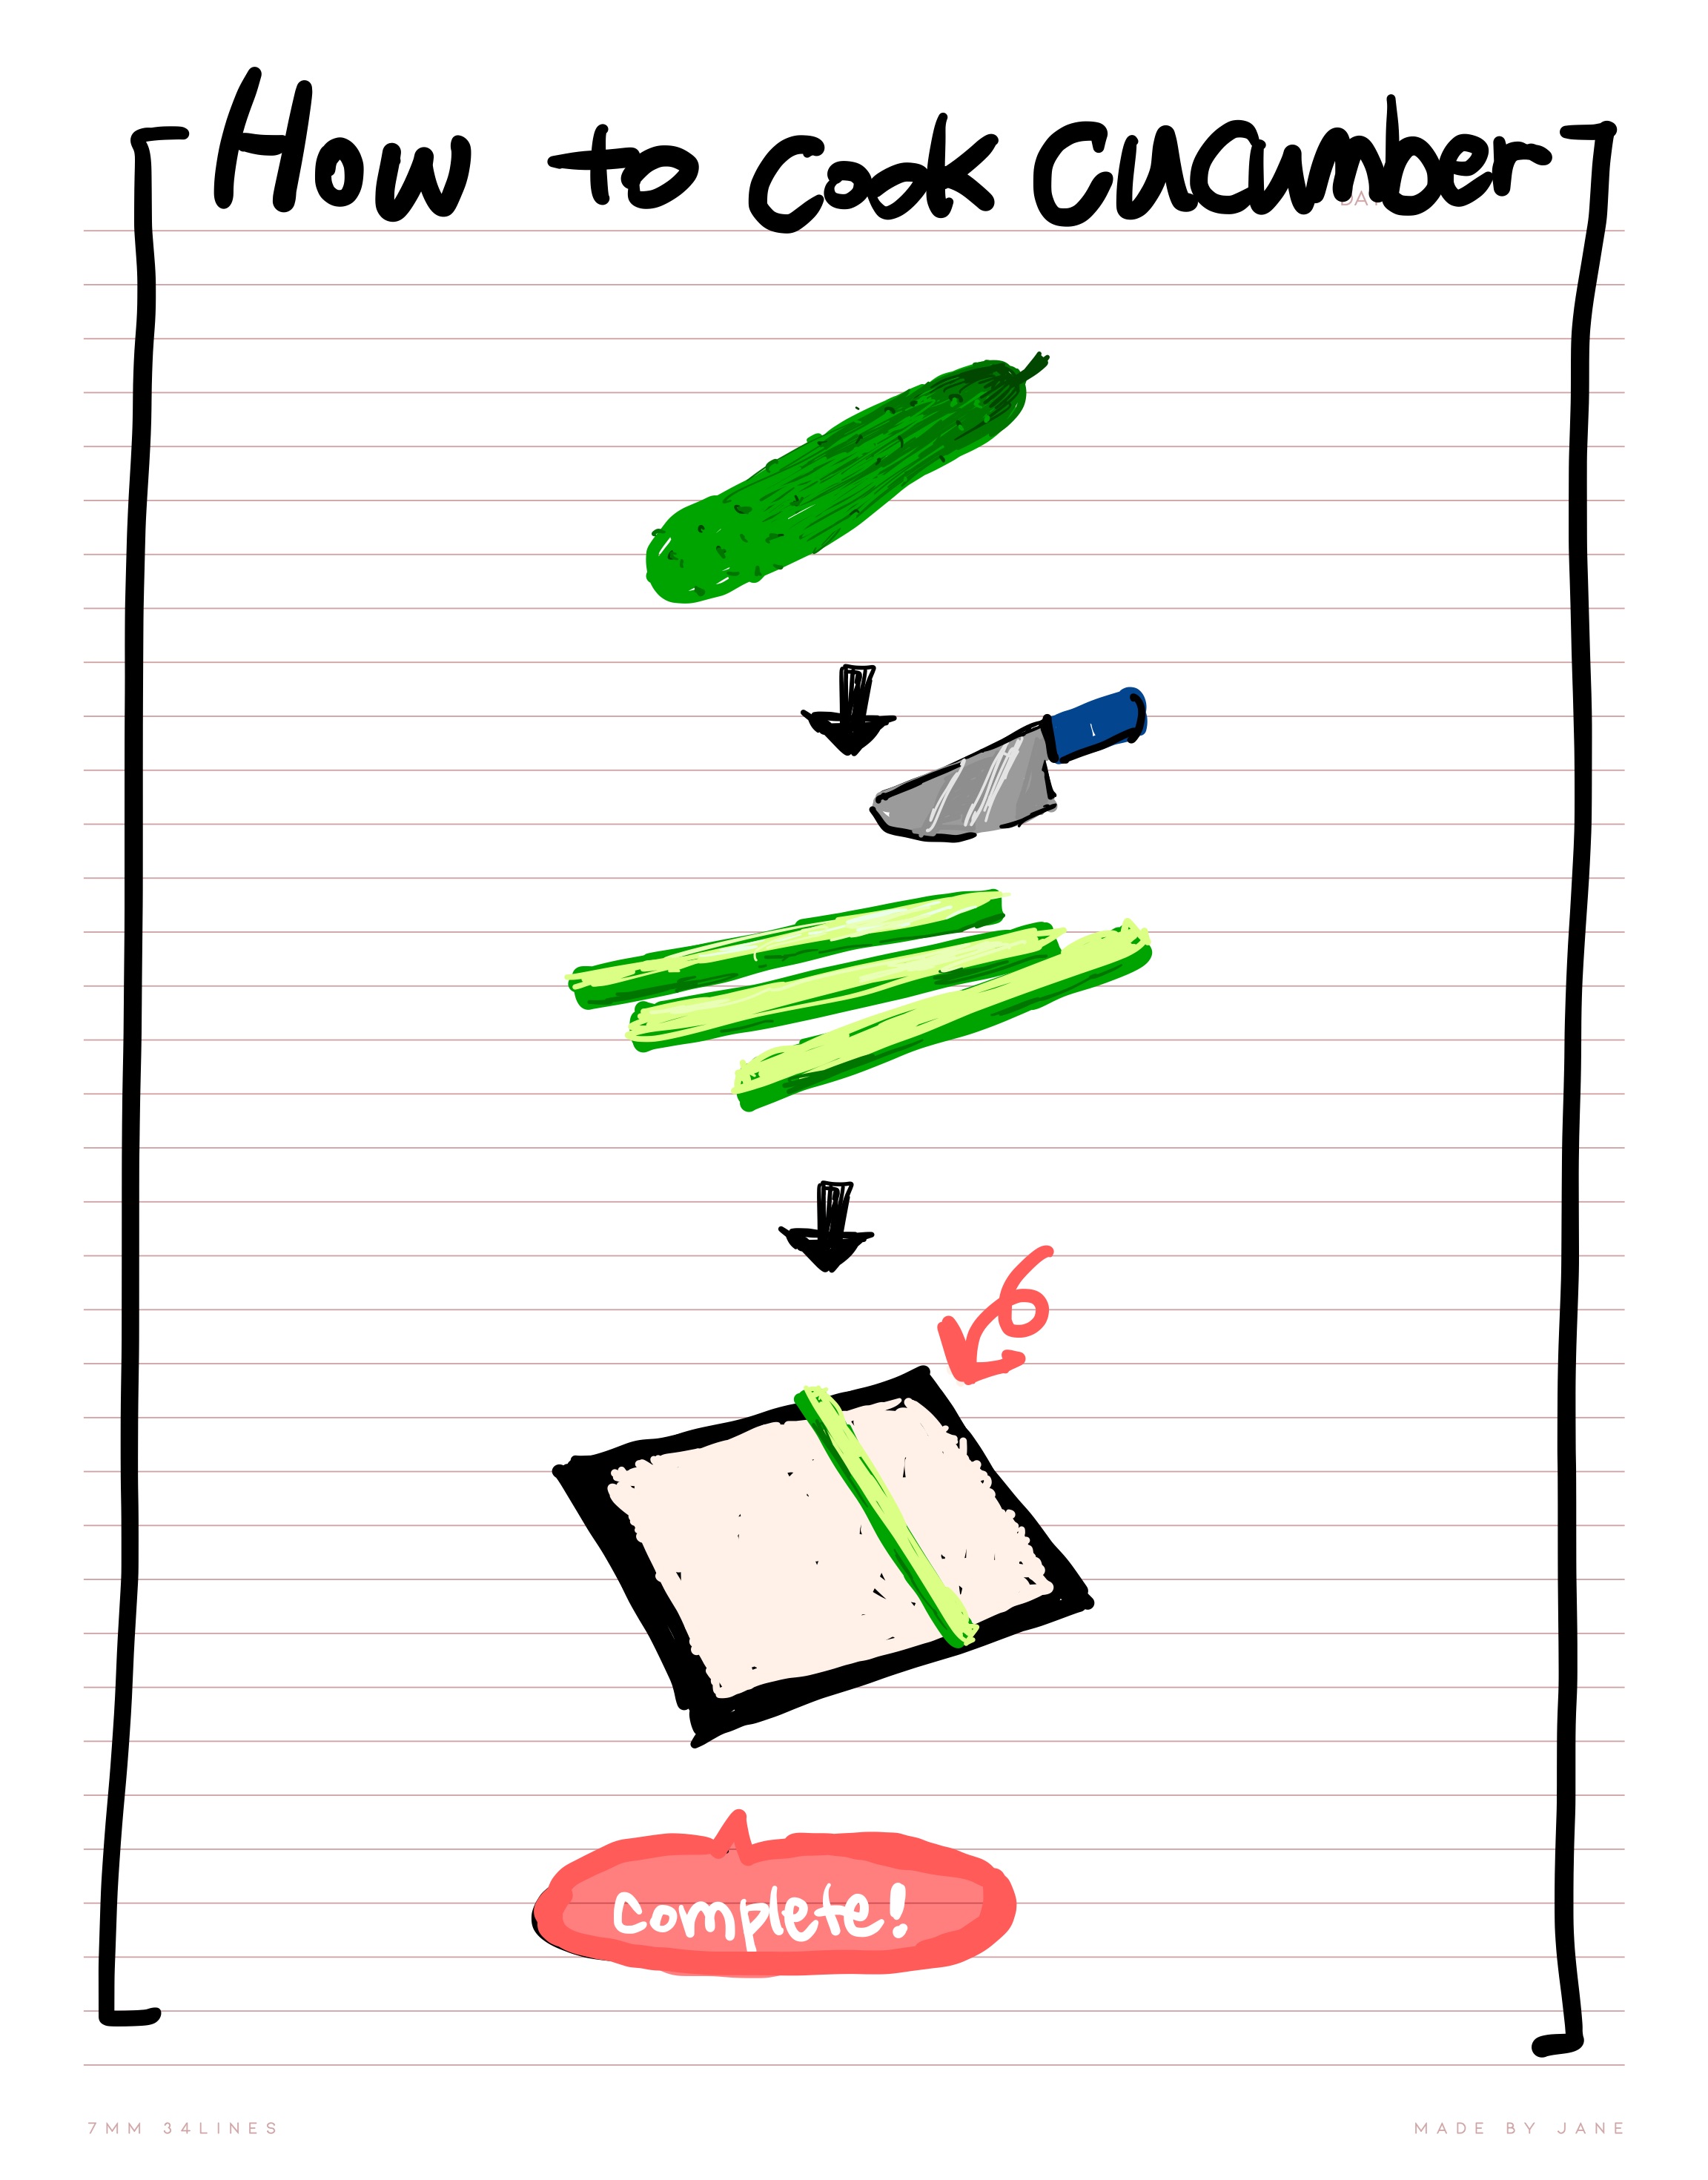 How to cook cucumber
Complete!
7MM 34LINES
MADE BY JANE